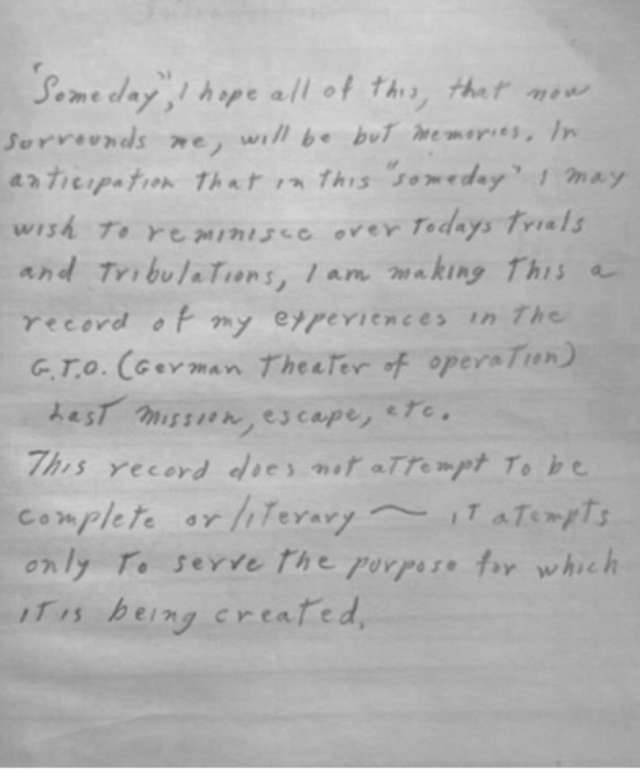 "Someday", I hope all of this, that now
surrounds me, will be but memories. In
anticipation that in this "someday" I may
wish to reminisce over todays trials
and tribulations, I am making this a
record of my experiences in the
G.T.O. (German Theater of operation)
Last mission, escape, etc.
This record does not attempt to be
complete or literary ~ it atempts
only to serve the purpose for which
it is being created.